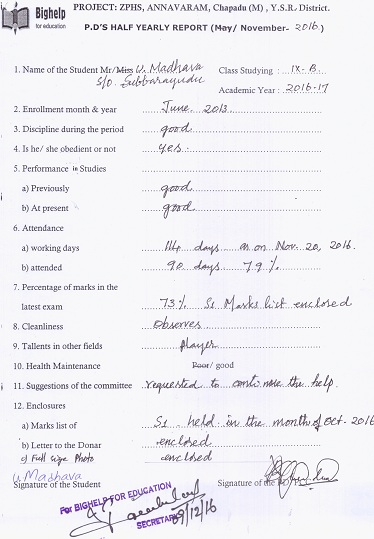 Bighelp
for education
PROJECT: ZPHS, ANNAVARAM, Chapadu (M) , Y.S.R. District.
P.D'S HALF YEARLY REPORT (May/ November- 2016.)
1. Name of the Student Mr/Miss U. Madhava Class Studying : IX - B.
S/o. Subbarayudu Academic Year : 2016-17
2. Enrollment month & year June. 2013.
3. Discipline during the period good
4. Is he/ she obedient or not yes.
5. Performance in Studies
a) Previously good
b) At present good
6. Attendance
a) working days 114 days as on Nov. 20, 2016.
b) attended 90 days 79%.
7. Percentage of marks in the
latest exam 73% S1 Marks list enclosed
8. Cleanliness Observes
9. Tallents in other fields player
10. Health Maintenance Poor/ good
11. Suggestions of the committee requested to continue the help.
12. Enclosures
a) Marks list of S1. held in the month of Oct. 2016
b) Letter to the Donar enclosed
c) Full size Photo enclosed
U. Madhava
Signature of the Student Signature of the
For BIGHELP FOR EDUCATION
SECRETARY
/12/16